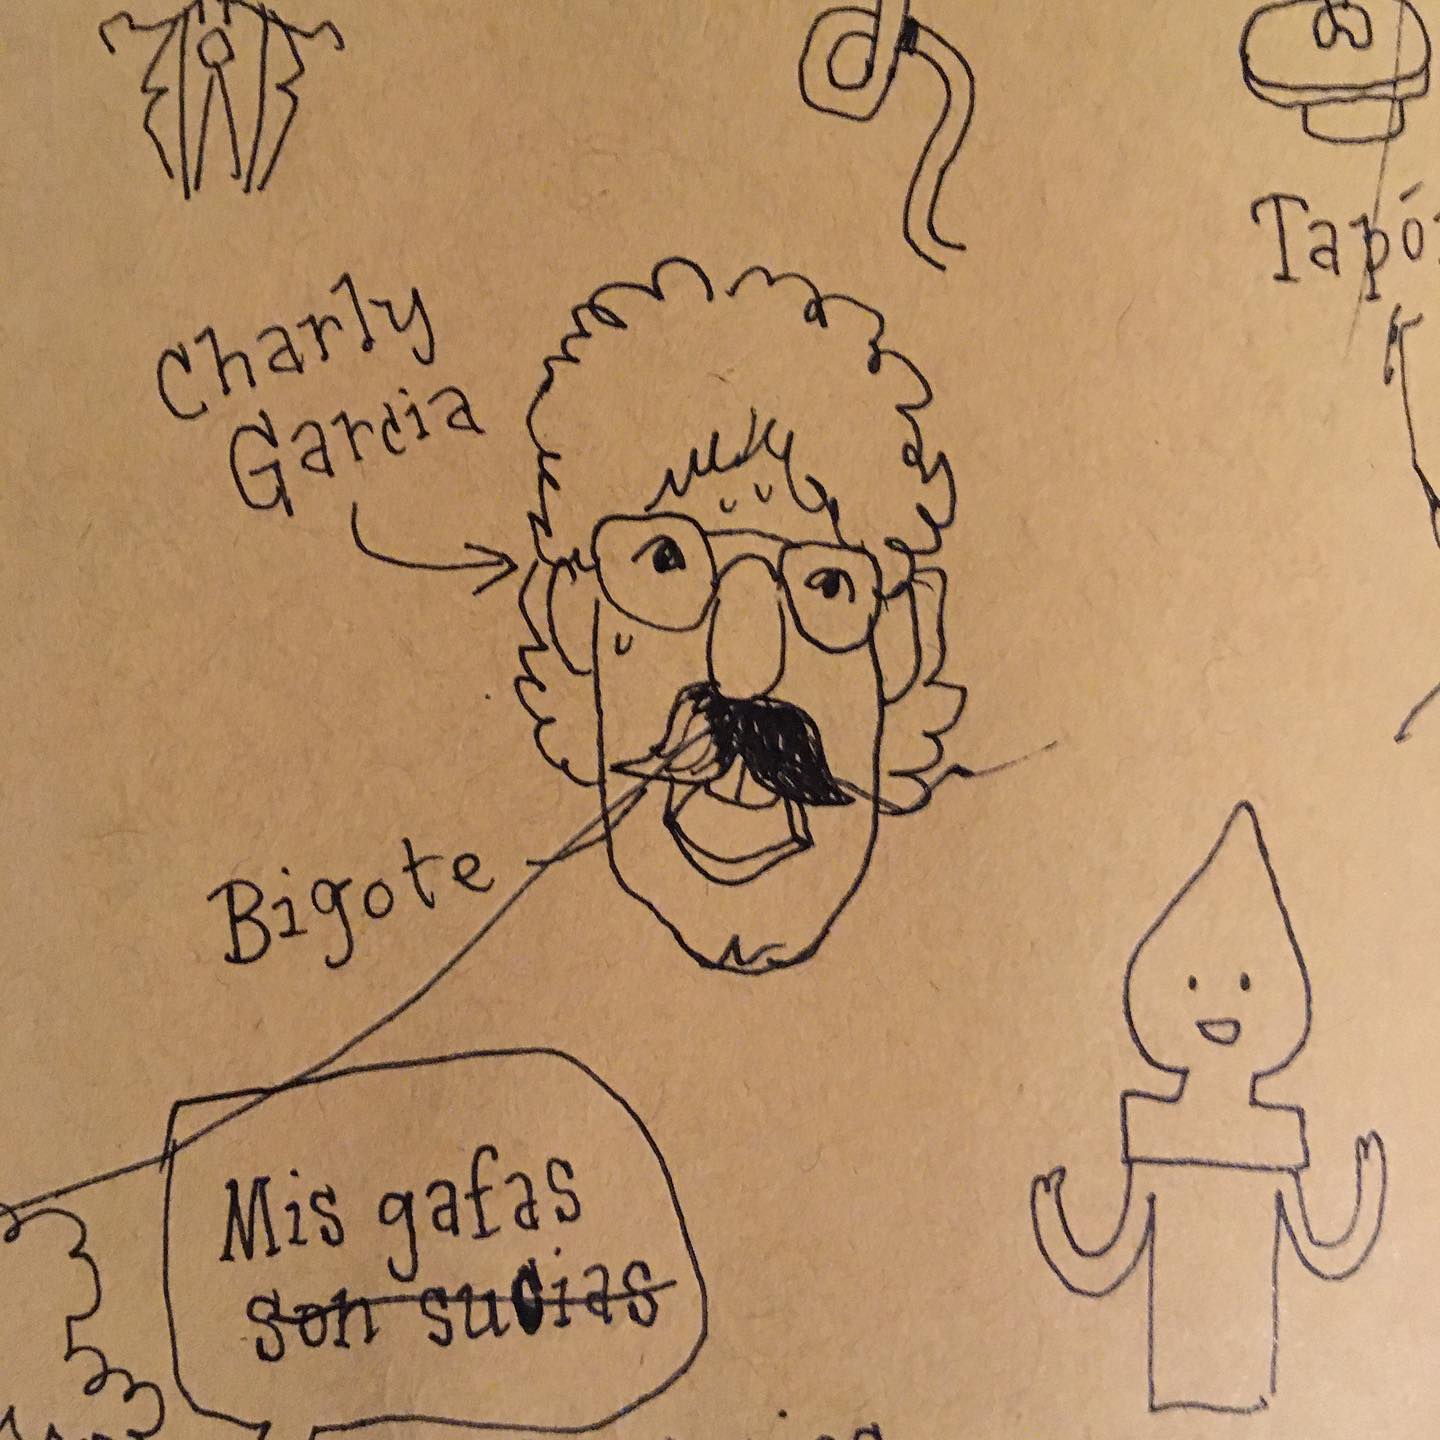 Tapó
Charly
Garcia
Bigote
Mis gafas
son sucias